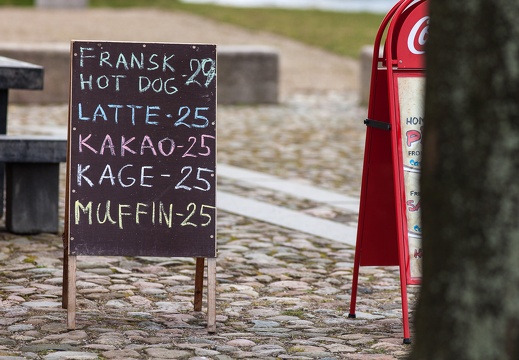 FRANSK
HOT DOG-29
LATTE-25.
KAKAO-25
KAGE-25
MUFFIN-25